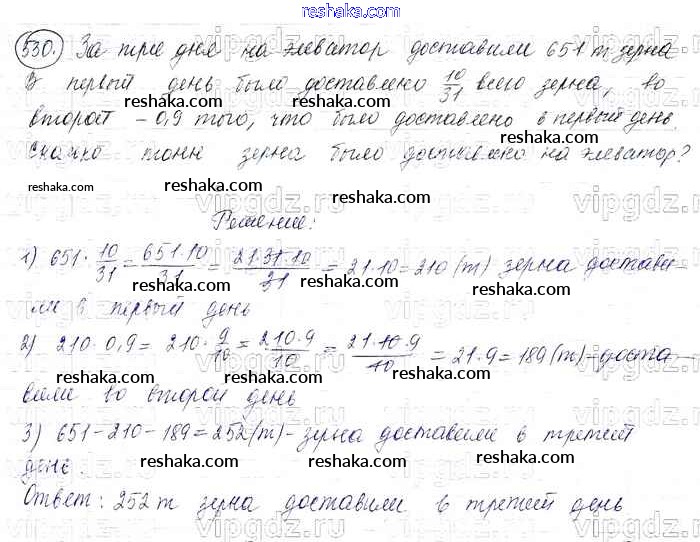 reshaka.com
530. За три дня на элеватор доставили 651 т зерна
reshaka.com
В первый день было доставлено 10/31 всего зерна, во
reshaka.com reshaka.com
второй – 0,9 того, что было доставлено в первый день.
Сколько тонн зерна было доставлено на элеватор?
reshaka.com reshaka.com reshaka.com
vipgdz.ru vipgdz.ru vipgdz.ru
Решение:
reshaka.com reshaka.com
1) 651 · 10/31 = 651·10/31 = 21·31·10/31 = 21·10 = 210 (т) зерна достави-
reshaka.com reshaka.com
ли в первый день
reshaka.com
2) 210 · 0,9 = 210 · 9/10 = 210·9/10 = 21·10·9/10 = 21·9 = 189 (т) – доста
reshaka.com reshaka.com reshaka.com
вили во второй день
reshaka.com
3) 651 – 210 – 189 = 252 (т) – зерна доставили в третий
reshaka.com reshaka.com
день.
reshaka.com reshaka.com
Ответ: 252 т зерна доставили в третий день
reshaka.com
vipgdz.ru vipgdz.ru vipgdz.ru